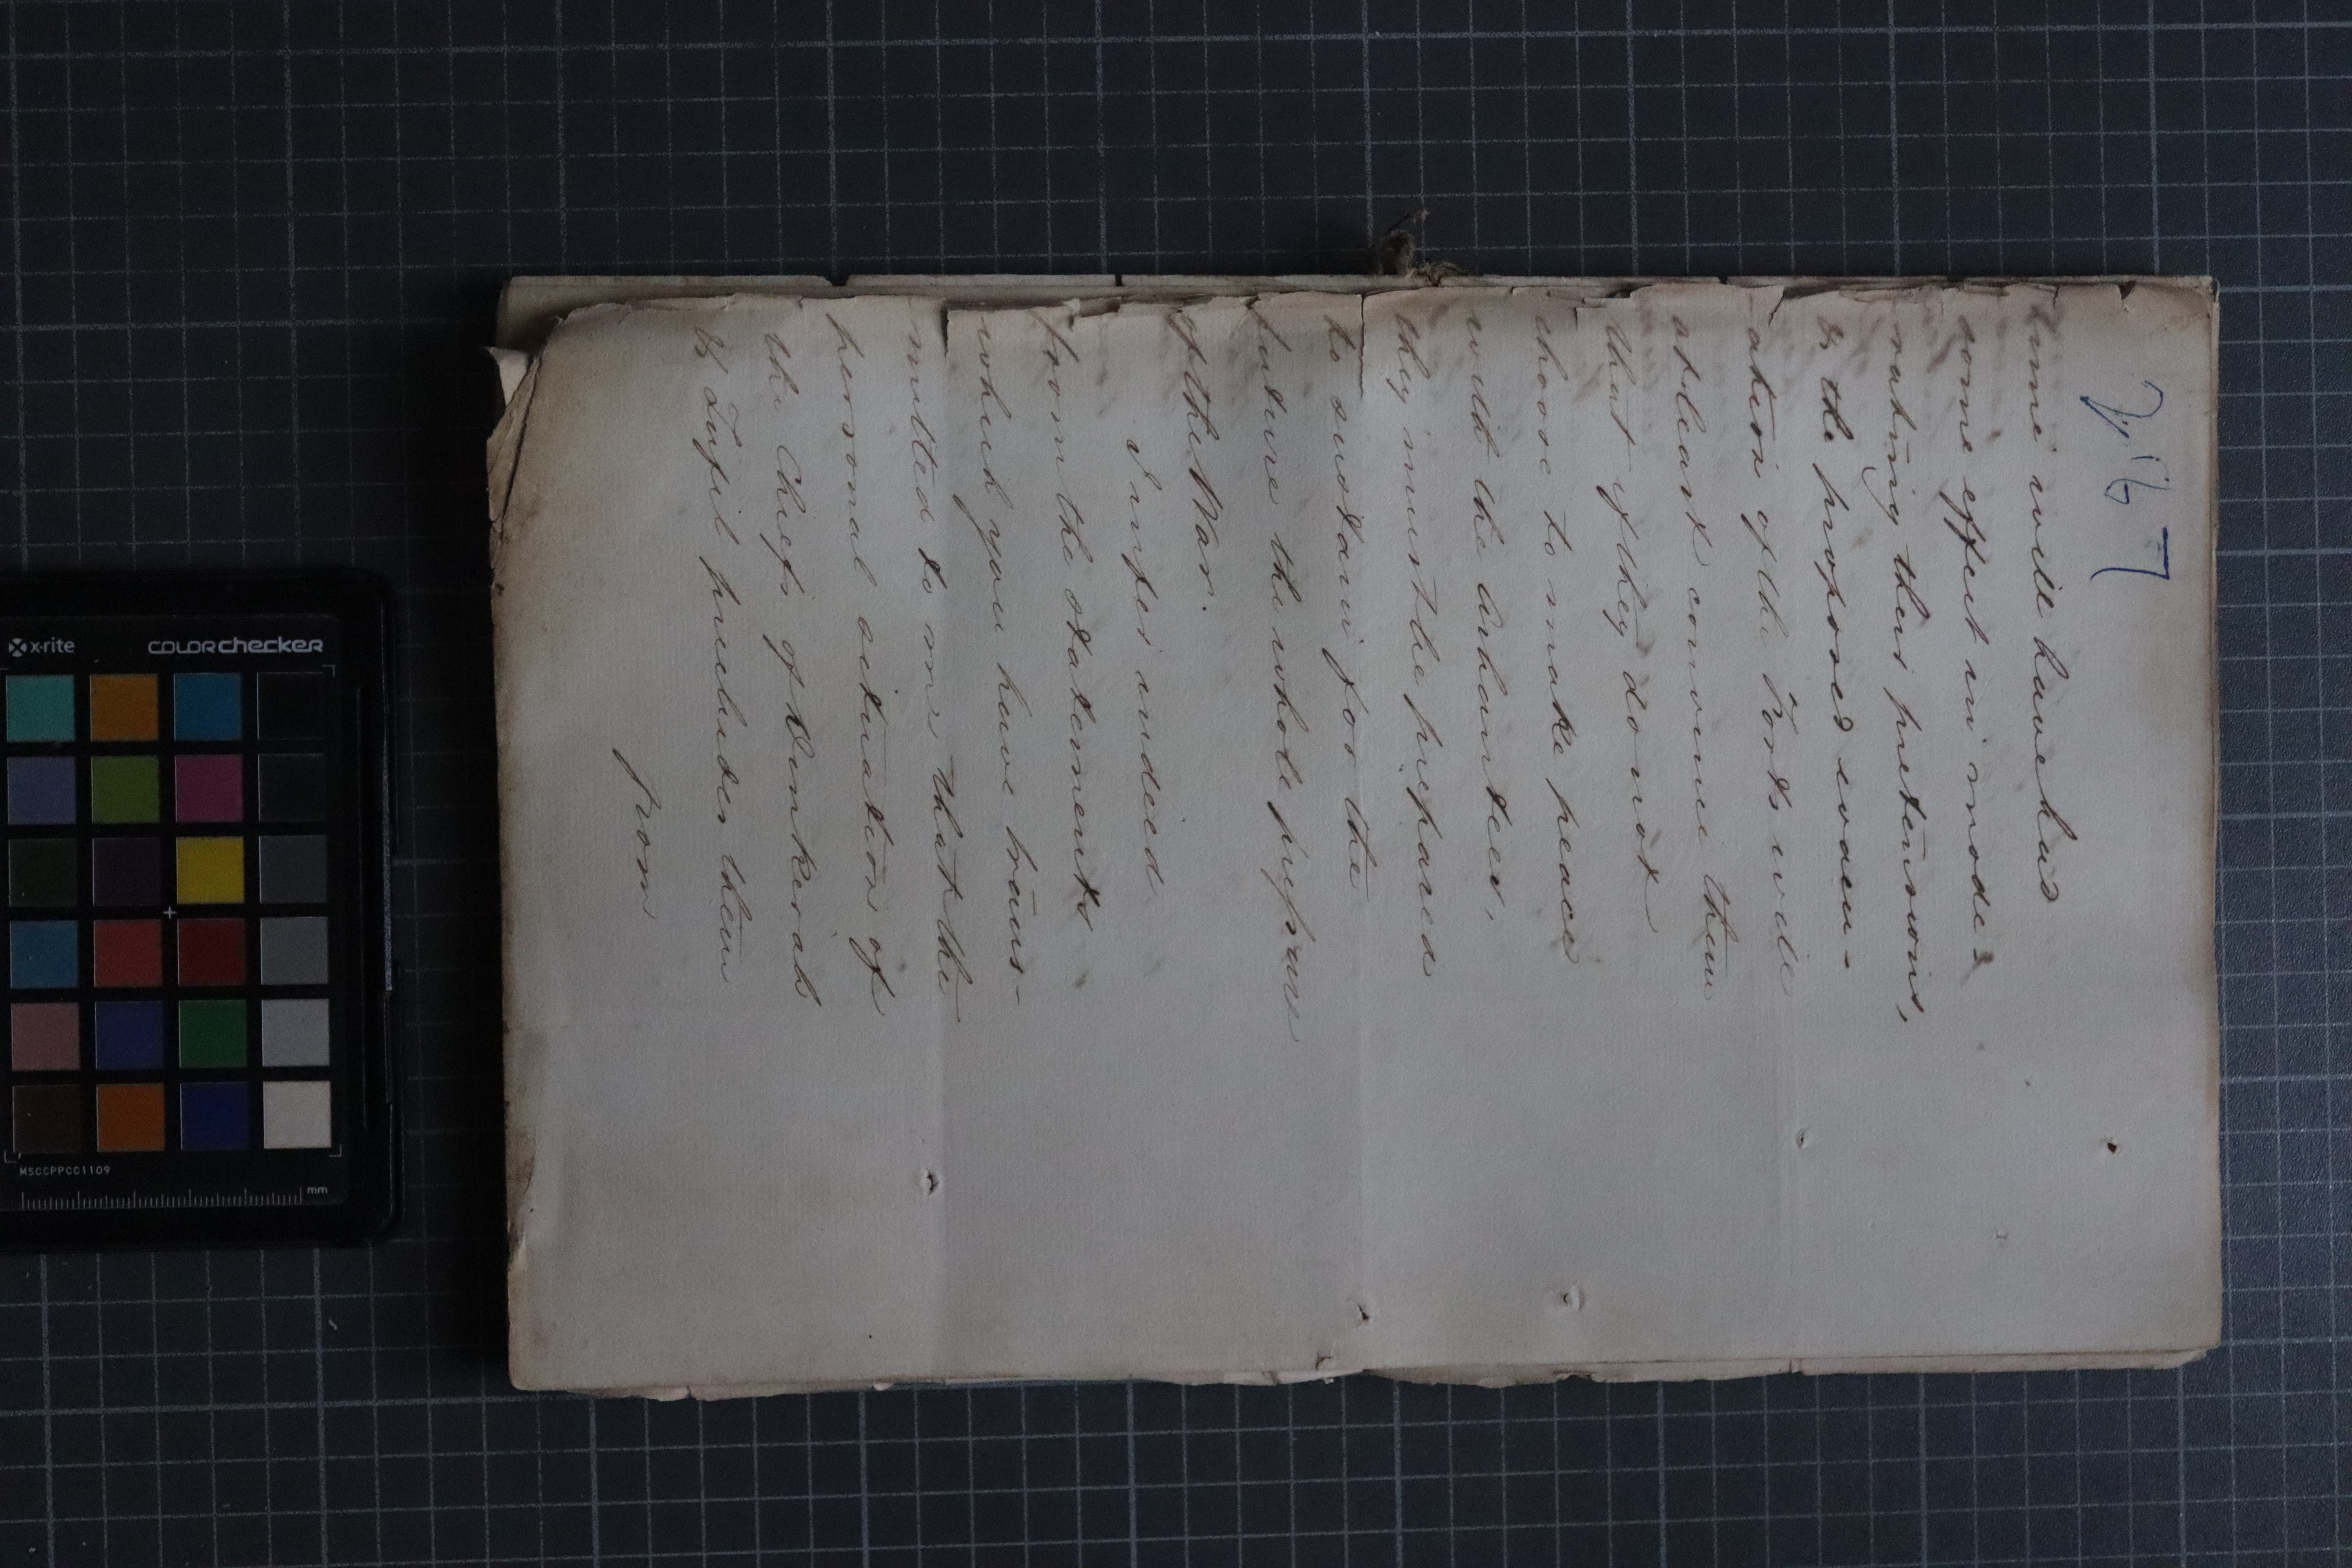 time will have had
some effect in mode=
rating their pretensions,
& the proposed evacu-
ation of the Forts will
at least convince them
that if they do not
choose to make peace
with the Ashantees,
they must be prepared
to sustain for the
future the whole pressure
of the War.
I infer indeed
from the statements
which you have trans-
mitted to me that the
personal situation of
the Chiefs of Dinkerah
& Tufel precludes them
from
x-rite
colorchecker
MSCCPPCC1109
mm